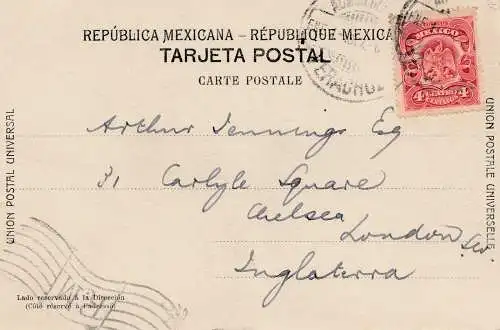 REPÚBLICA MEXICANA - RÉPUBLIQUE MEXICAINE
TARJETA POSTAL
CARTE POSTALE
MEXICO
4 CUATRO CENTAVOS 4
UNION POSTAL UNIVERSAL
UNION POSTALE UNIVERSELLE
Arthur Jennings Esq
31 Carlyle Square
Chelsea
London
Inglaterra
Lado reservado á la Dirección
(Côté réservé à l'adresse)